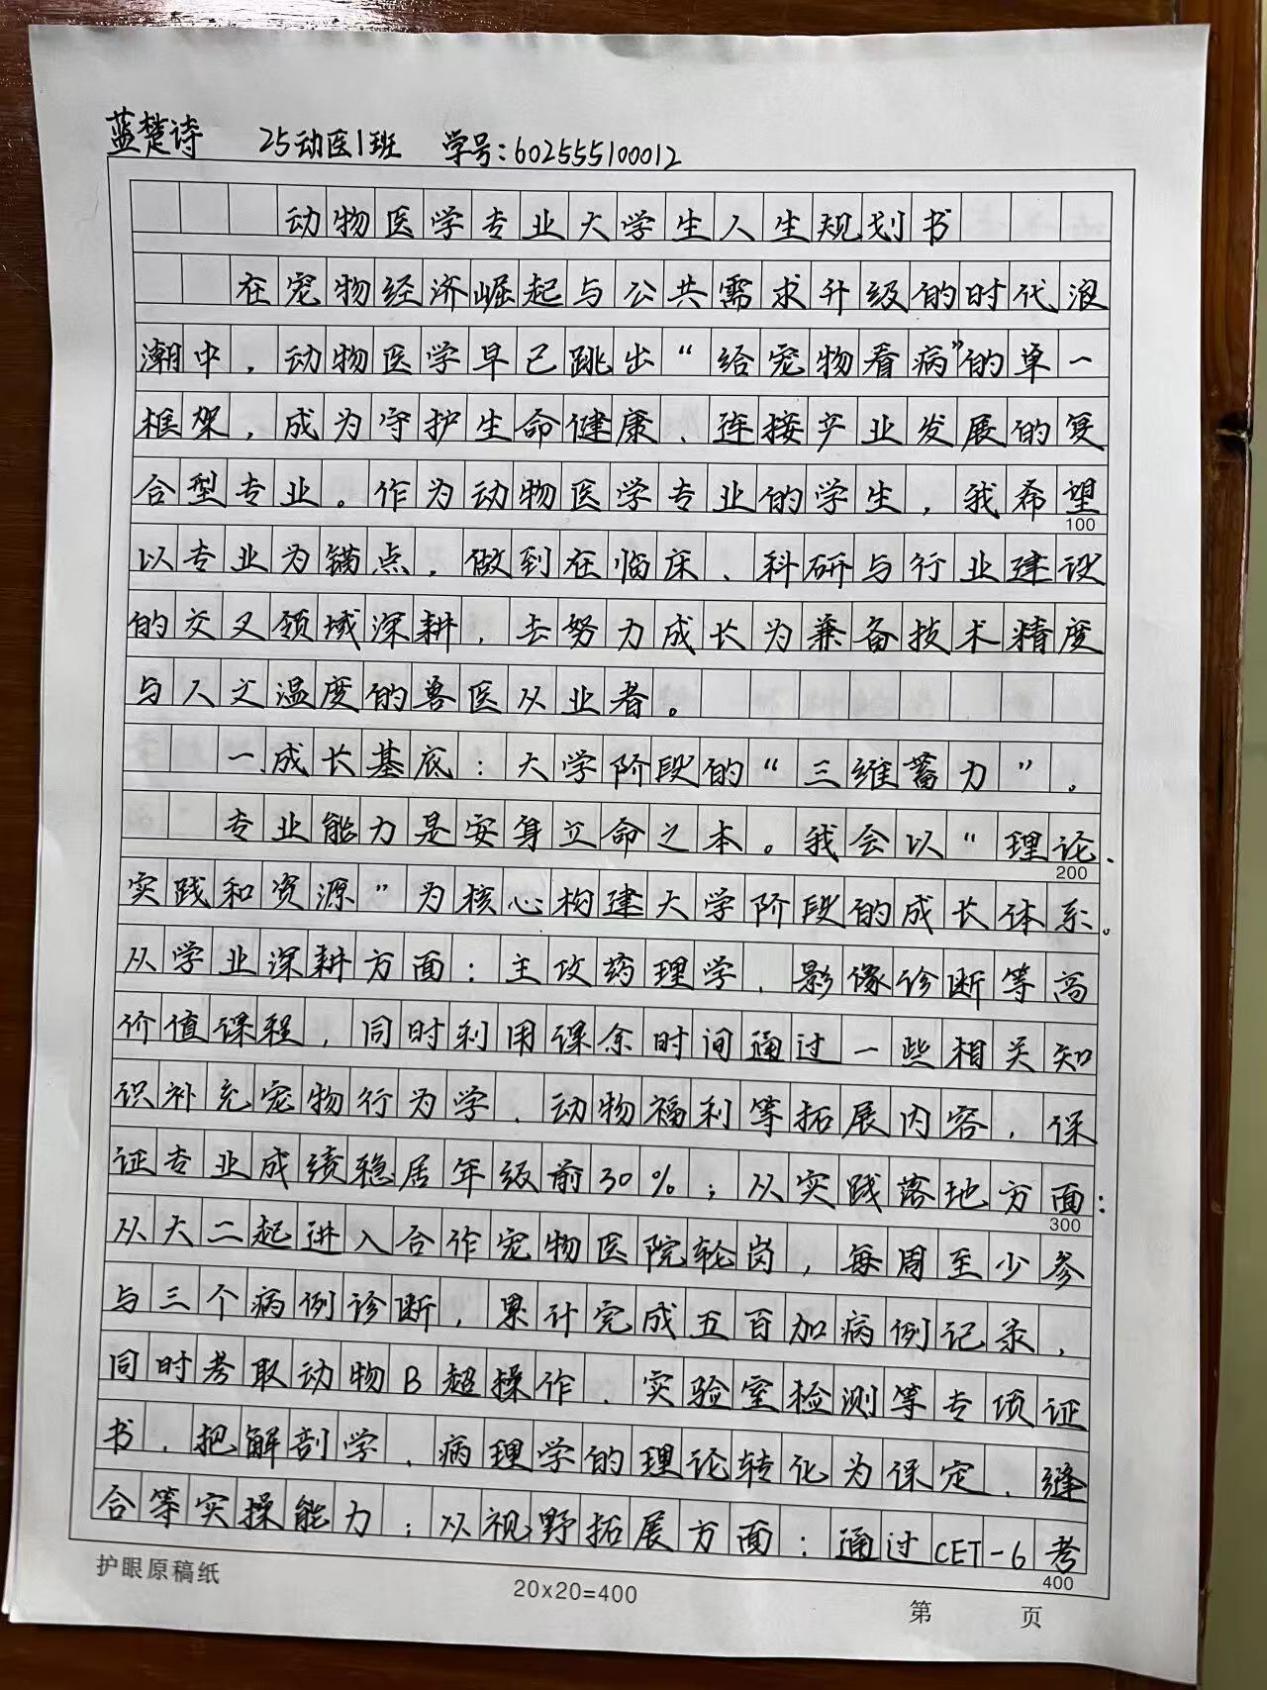 蓝楚诗 25动医1班 学号:602555100012
动物医学专业大学生人生规划书
在宠物经济崛起与公共需求升级的时代浪
潮中,动物医学早已跳出“给宠物看病”的单一
框架,成为守护生命健康、连接产业发展的复
合型专业。作为动物医学专业的学生,我希望
100
以专业为锚点,做到在临床、科研与行业建设
的交叉领域深耕,去努力成长为兼备技术精度
与人文温度的兽医从业者。
一成长基底:大学阶段的“三维蓄力”。
专业能力是安身立命之本。我会以“理论、
200
实践和资源”为核心构建大学阶段的成长体系。
从学业深耕方面:主攻药理学、影像诊断等高
价值课程,同时利用课余时间通过一些相关知
识补充宠物行为学、动物福利等拓展内容,保
证专业成绩稳居年级前30%;从实践落地方面:
300
从大二起进入合作宠物医院轮岗,每周至少参
与三个病例诊断,累计完成五百加病例记录,
同时考取动物B超操作、实验室检测等专项证
书,把解剖学、病理学的理论转化为保定、缝
合等实操能力;从视野拓展方面:通过CET-6考
400
护眼原稿纸
20x20=400
第 页